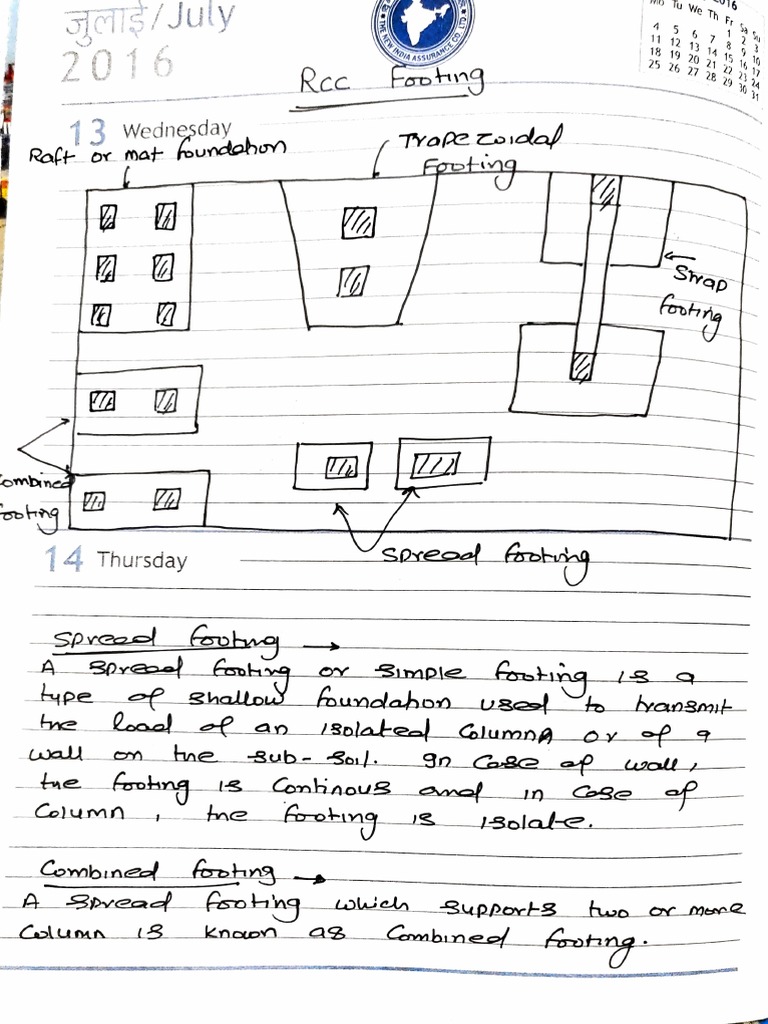 जुलाई/July
2016
THE NEW INDIA ASSURANCE CO. LTD
2016
Mo Tu We Th Fr Sa Su
1 2 3
4 5 6 7 8 9 10
11 12 13 14 15 16 17
18 19 20 21 22 23 24
25 26 27 28 29 30 31
Rcc Footing
13 Wednesday
Raft or mat foundation
Trapezoidal
Footing
Strap
footing
Combined
footing
14 Thursday
Spread footing
Spread footing →
A spread footing or simple footing is a
type of shallow foundation used to transmit
the load of an isolated column or of a
wall on the sub-soil. In case of wall,
the footing is continous and in case of
column, the footing is isolate.
Combined footing →
A spread footing which supports two or more
column is known as combined footing.